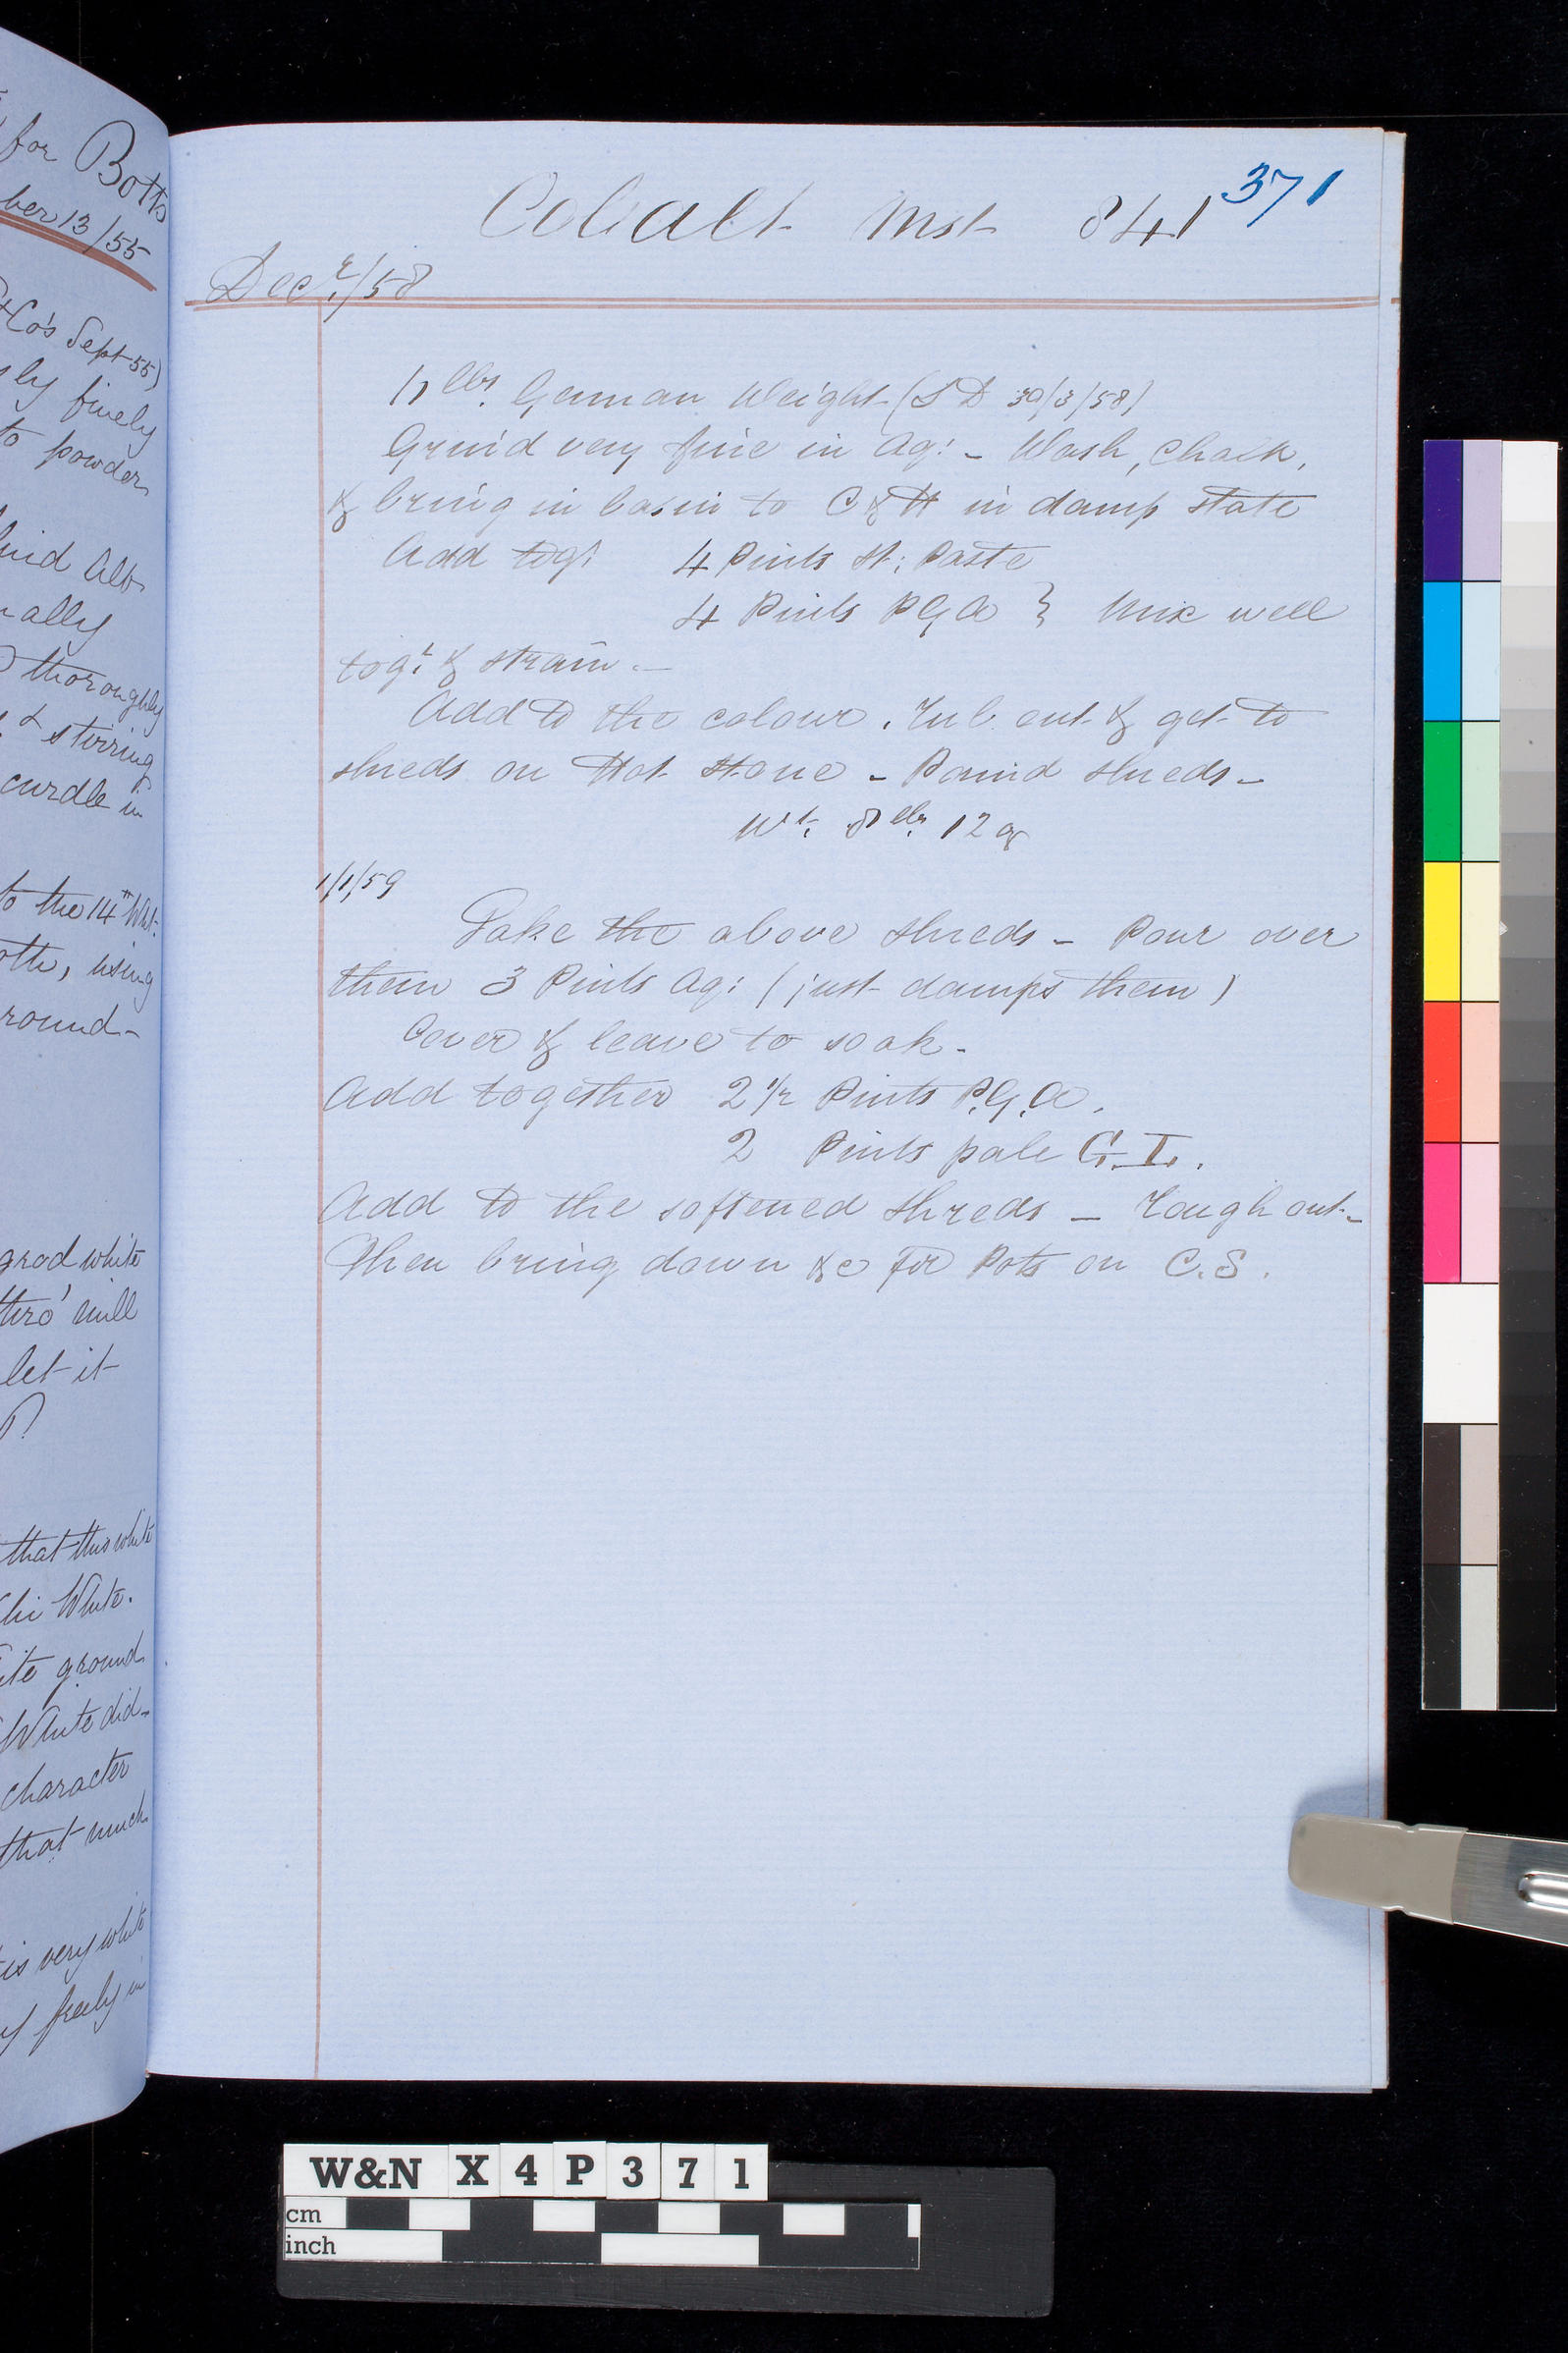 for Botts
ber 13/55
& Co's Sept 55)
ly finely
to powder
ally
thoroughly
& stirring
curdle in
to the 14th Wht.
using
round-
grod white
thro' mill
let it
that this white
White.
ground
White did-
character
that much
is very white
freely in
371
Cobalt Mst 841
Decr/58
11 lbs. German Weight (SD 30/3/58)
Grind very fine in Aq: - Wash, Chalk,
& bring in basin to C & H in damp state
Add togr 4 Pints St: Paste
4 Pints PGA } Mix well
togr: & strain. -
Add to the colour. Rub out & get to
shreds on Hot Stone - Pound shreds -
Wt. 8 lbs. 12 oz
1/1/59
Take the above shreds - Pour over
them 3 Pints Aq: (just damps them)
Cover & leave to soak -
Add together 2 1/2 Pints P.G.A.
2 Pints pale G.I.
Add to the softened shreds - Rough out -
Then bring down &c for Pots on C.S.
W&N X 4 P 3 7 1
cm
inch